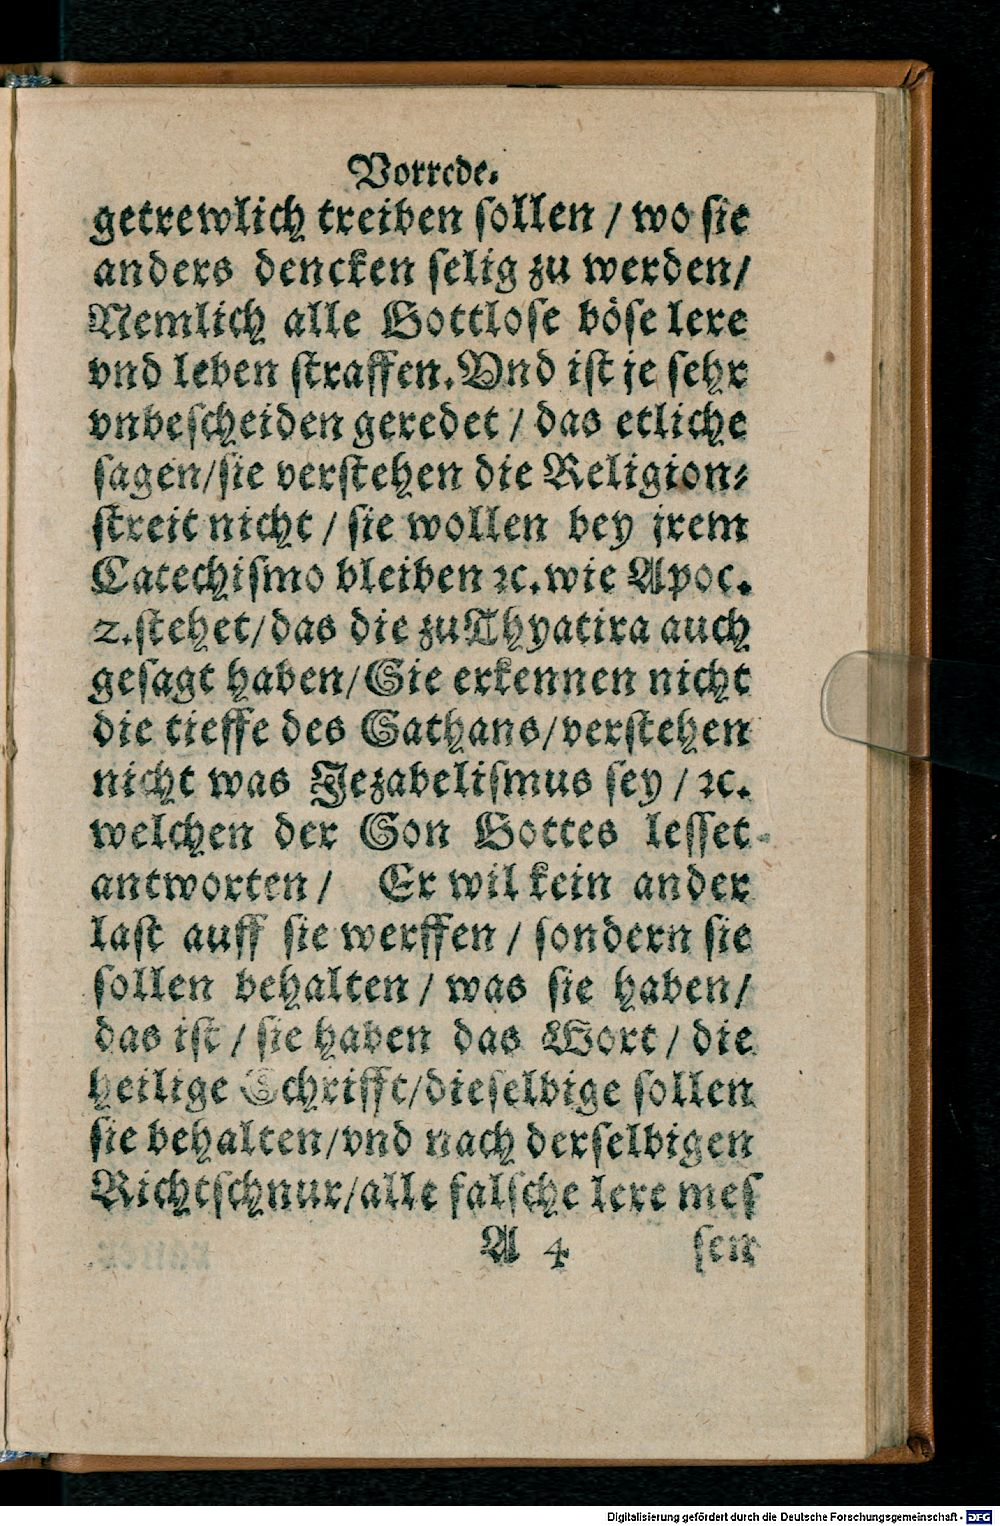 Vorrede.
getrewlich treiben sollen / wo sie
anders dencken selig zu werden/
Nemlich alle Gottlose böse lere
vnd leben straffen. Vnd ist je sehr
vnbescheiden geredet / das etliche
sagen/sie verstehen die Religion⸗
streit nicht / sie wollen bey jrem
Catechismo bleiben ꝛc. wie Apoc.
2. stehet/das die zu Thyatira auch
gesagt haben/Sie erkennen nicht
die tieffe des Sathans/verstehen
nicht was Jezabelismus sey / ꝛc.
welchen der Son Gottes lesset
antworten / Er wil kein ander
last auff sie werffen / sondern sie
sollen behalten / was sie haben/
das ist / sie haben das Wort / die
heilige Schrifft/dieselbige sollen
sie behalten/vnd nach derselbigen
Richtschnur/alle falsche lere mes
A 4 sen
Digitalisierung gefördert durch die Deutsche Forschungsgemeinschaft - DFG